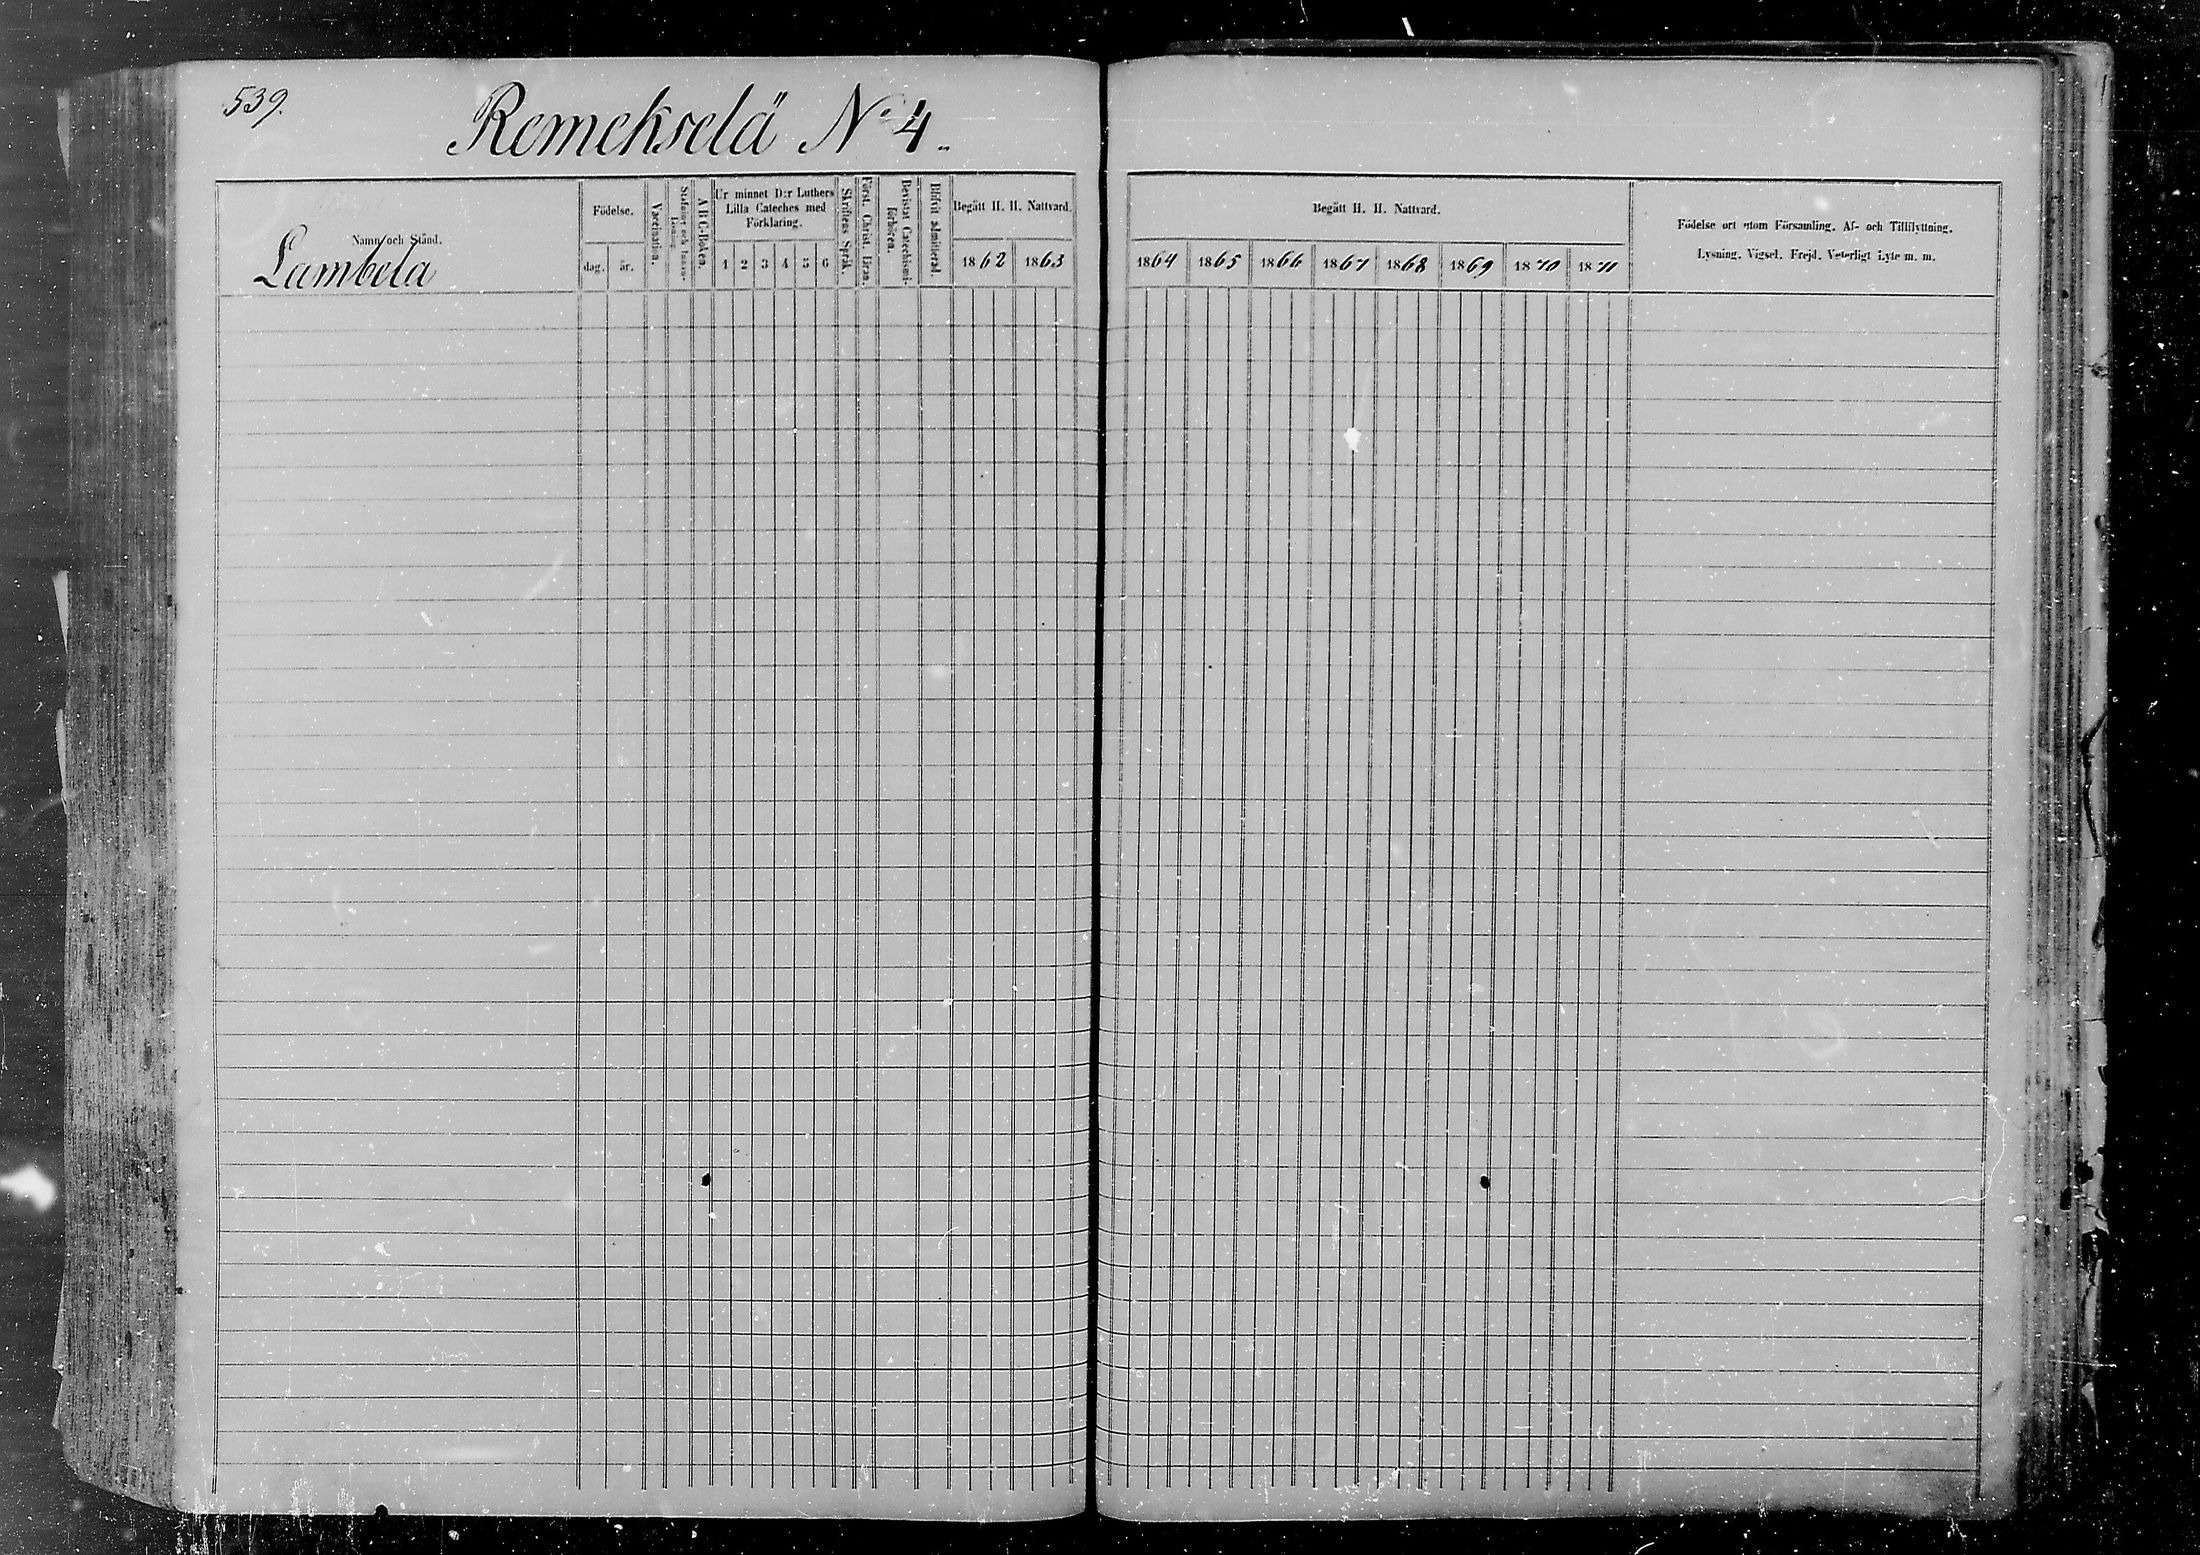 539.
Remekselä No 4.
Namn och Stånd.
Lambela
Födelse.
dag. år.
Vaccination.
Stafning och Innan-läsning.
A B C-Boken.
Ur minnet D:r Luthers
Lilla Cateches med
Förklaring.
1 2 3 4 5 6
Skriftens Språk.
Först. Christ. läran.
Bevistat Catechismi-förhören.
Blifvit admitterad.
Begått H. H. Nattvard.
1862 1863
Begått H. H. Nattvard.
1864 1865 1866 1867 1868 1869 1870 1871
Födelse ort utom Församling. Af- och Tillflyttning.
Lysning. Vigsel. Frejd. Veterligt Lyte m. m.